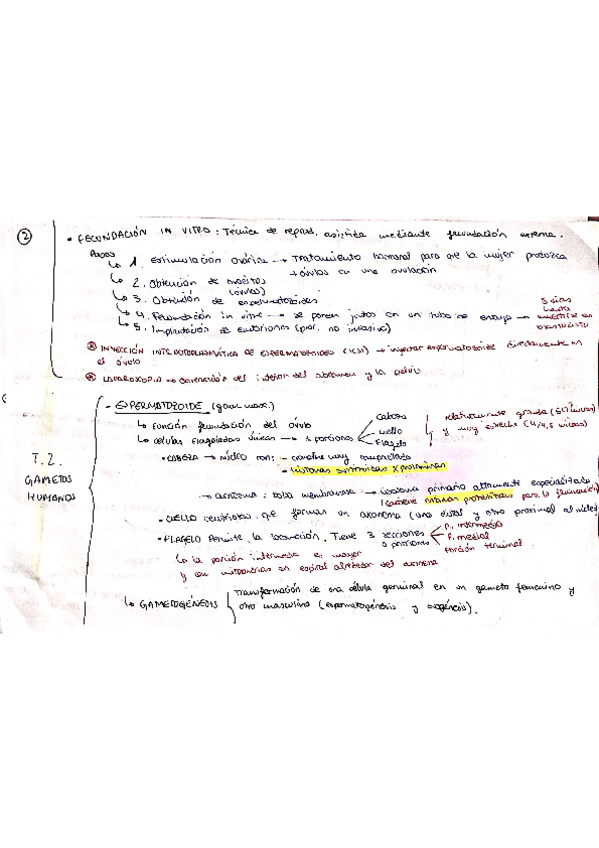 2
• FECUNDACIÓN IN VITRO: Técnica de reprod. asistida mediante fecundación externa.
Pasos
↳ 1. Estimulación ovárica → Tratamiento hormonal para que la mujer produzca
+ óvulos en una ovulación
↳ 2. Obtención de ovocitos
(óvulos)
↳ 3. Obtención de espermatozoides
↳ 4. Fecundación in vitro → se ponen juntos en un tubo de ensayo → 5 días hasta convertirse en blastocisto
↳ 5. Implantación de embriones (no invasiva)
INYECCIÓN INTRACITOPLASMÁTICA DE ESPERMATOZOIDES (ICSI) → inyectar espermatozoide directamente en
el óvulo
LAPAROSCOPIA → del interior del abdomen y la pelvis
T.2.
GAMETOS
HUMANOS
- ESPERMATOZOIDE (gam. masc.)
↳ Función fecundación del óvulo
↳ células flageladas únicas → 3 porciones
Cabeza
cuello
Flagelo
relativamente grande
y muy estrecha
• CABEZA → núcleo con: - cromatina muy compactada
- histonas sustituidas x protaminas
→ Acrosoma: bolsa membranosa → lisosoma primario altamente especializado
(contiene enzimas proteolíticas para la fecundación)
• CUELLO centriolos que forman un axonema (uno distal y otro proximal al núcleo)
• FLAGELO Permite la locomoción. Tiene 3 secciones
o porciones
P. intermedia
P. medial
Porción terminal
↳ la porción intermedia es mayor
y con mitocondrias en espiral alrededor del axonema
↳ GAMETOGÉNESIS
Transformación de una célula germinal en un gameto femenino y
otro masculino (espermatogénesis y ovogénesis).